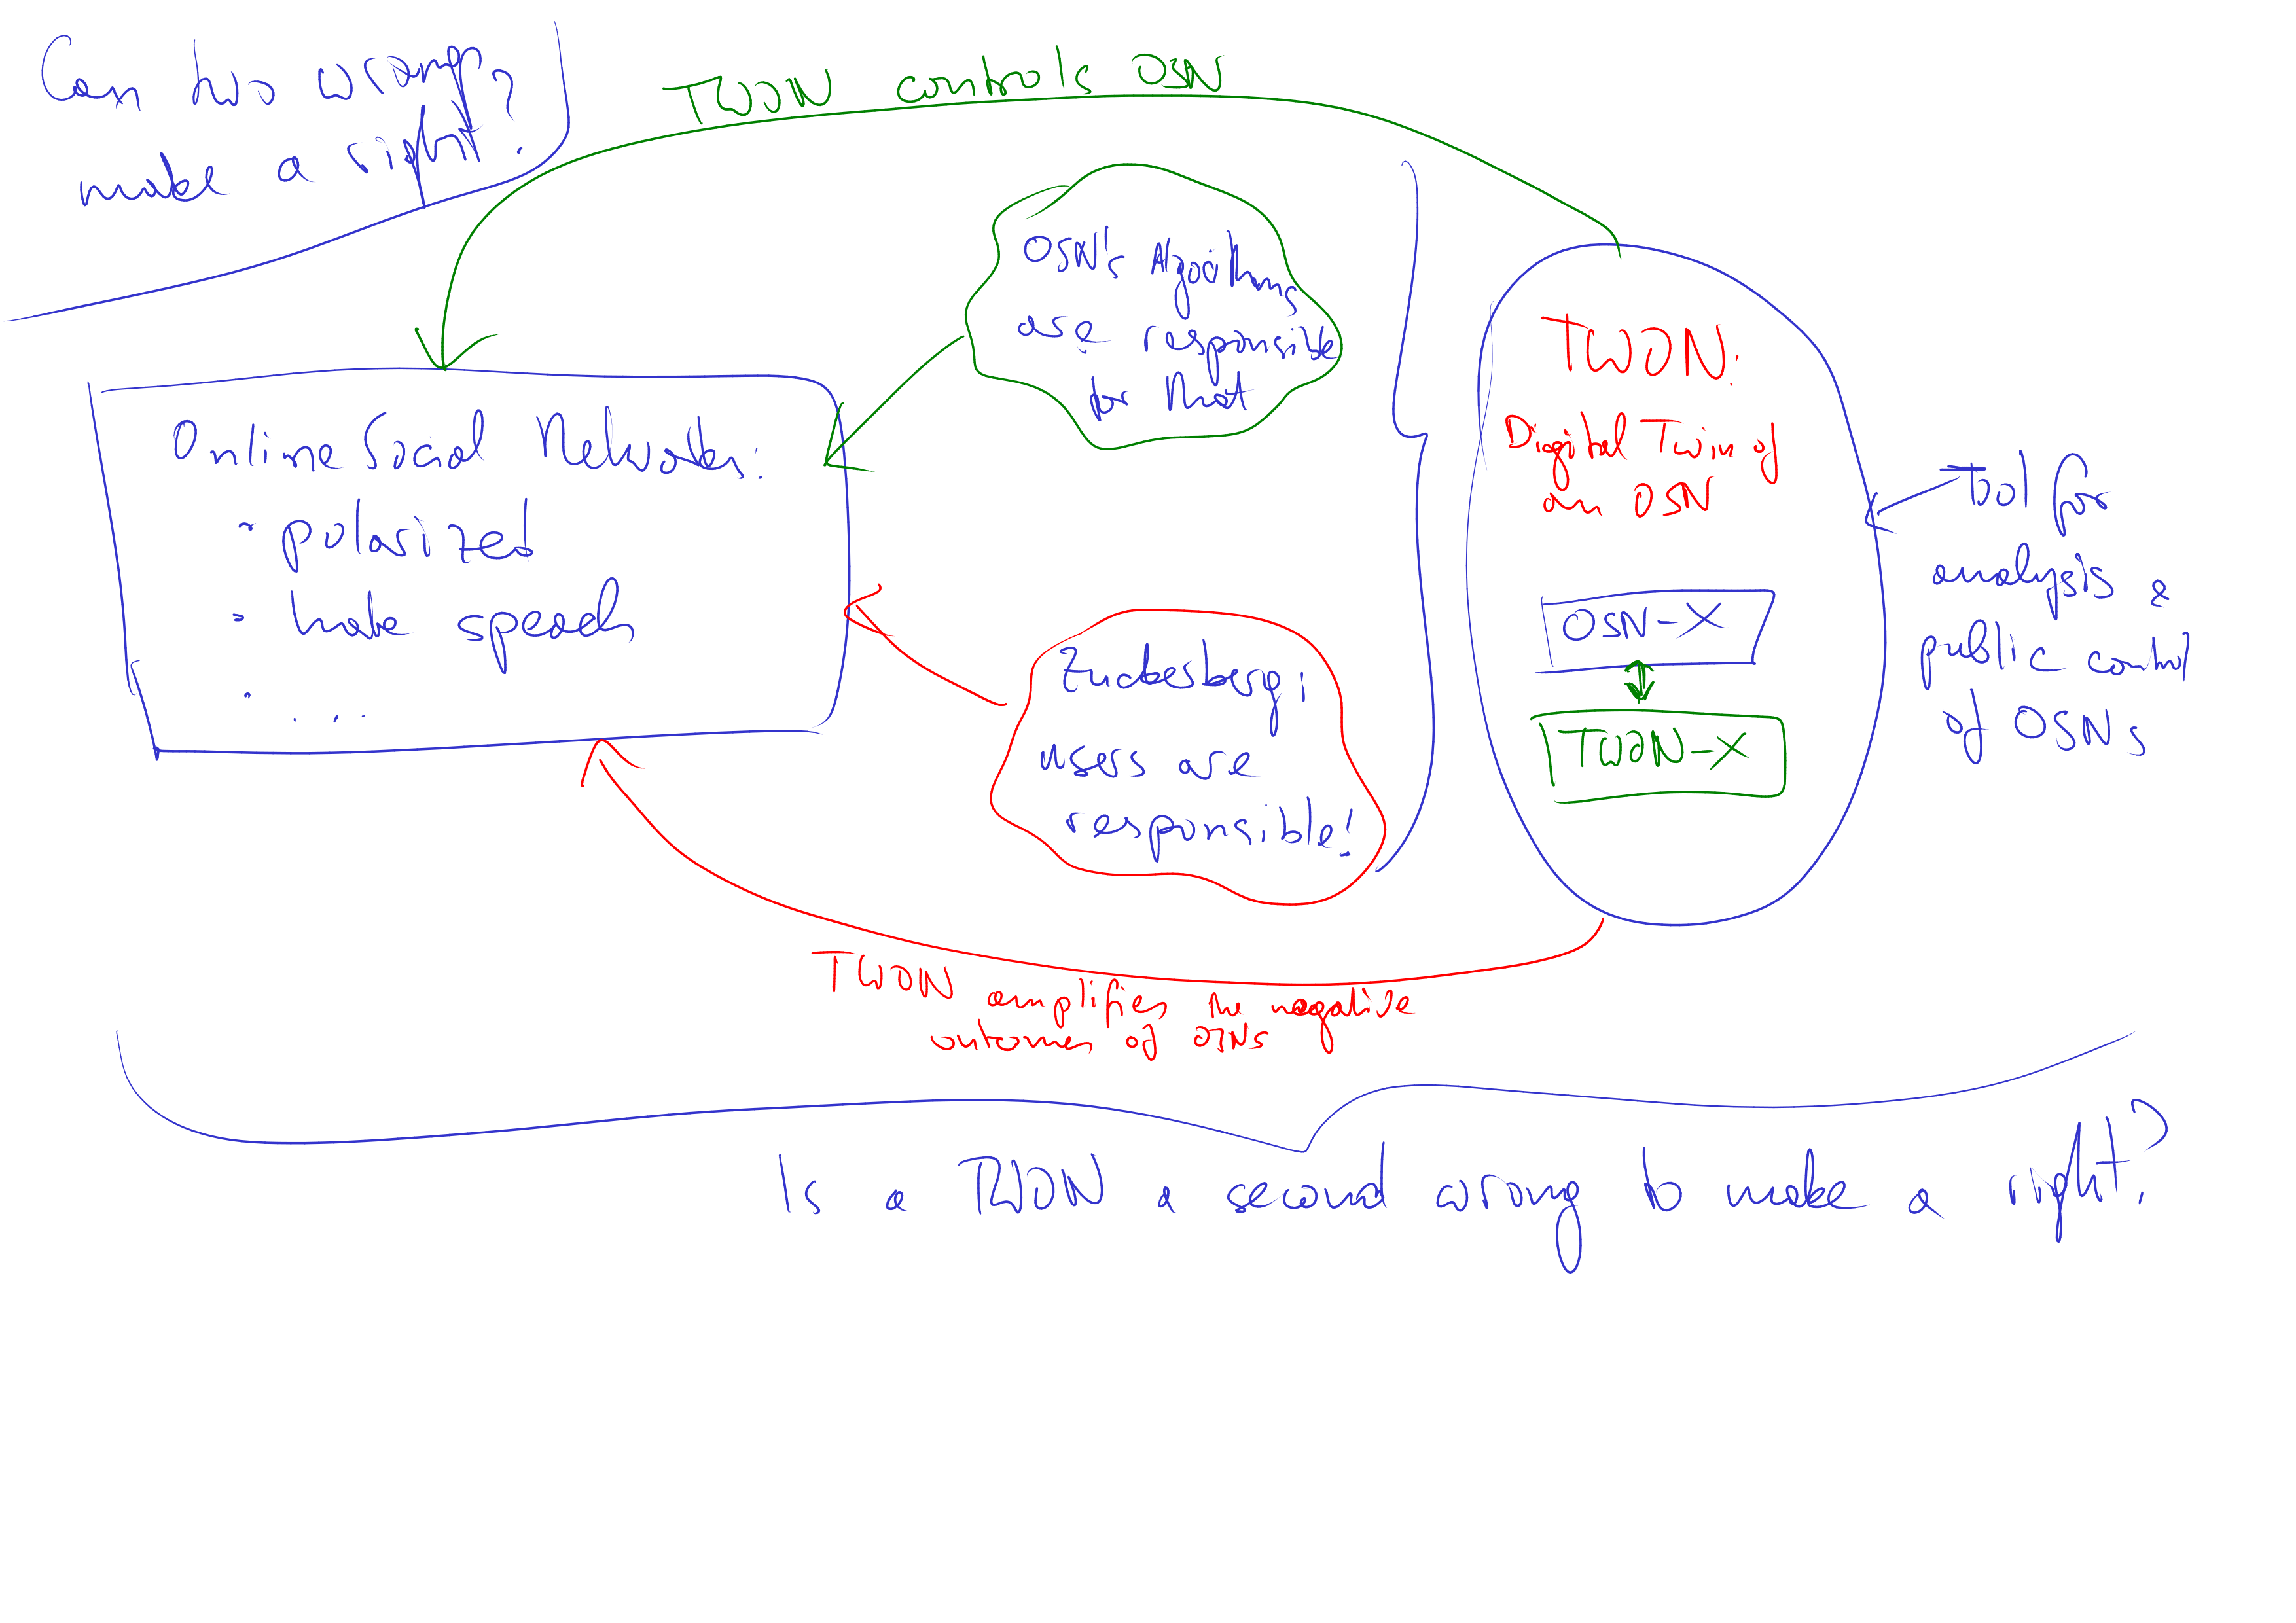 Can two wrongs
make a right?
TWON controls OSN
OSN's Algorithms
are responsible
for that
Online Social Networks:
- polarized
- hate speech
- ...
Zuckerberg:
users are
responsible!
TWON:
Digital Twin of
an OSN
OSN-X
TWON-X
Tool for
analysis &
public control
of OSNs
TWON amplifies the negative
outcomes of OSNs
Is a TWON a second wrong to make a right?